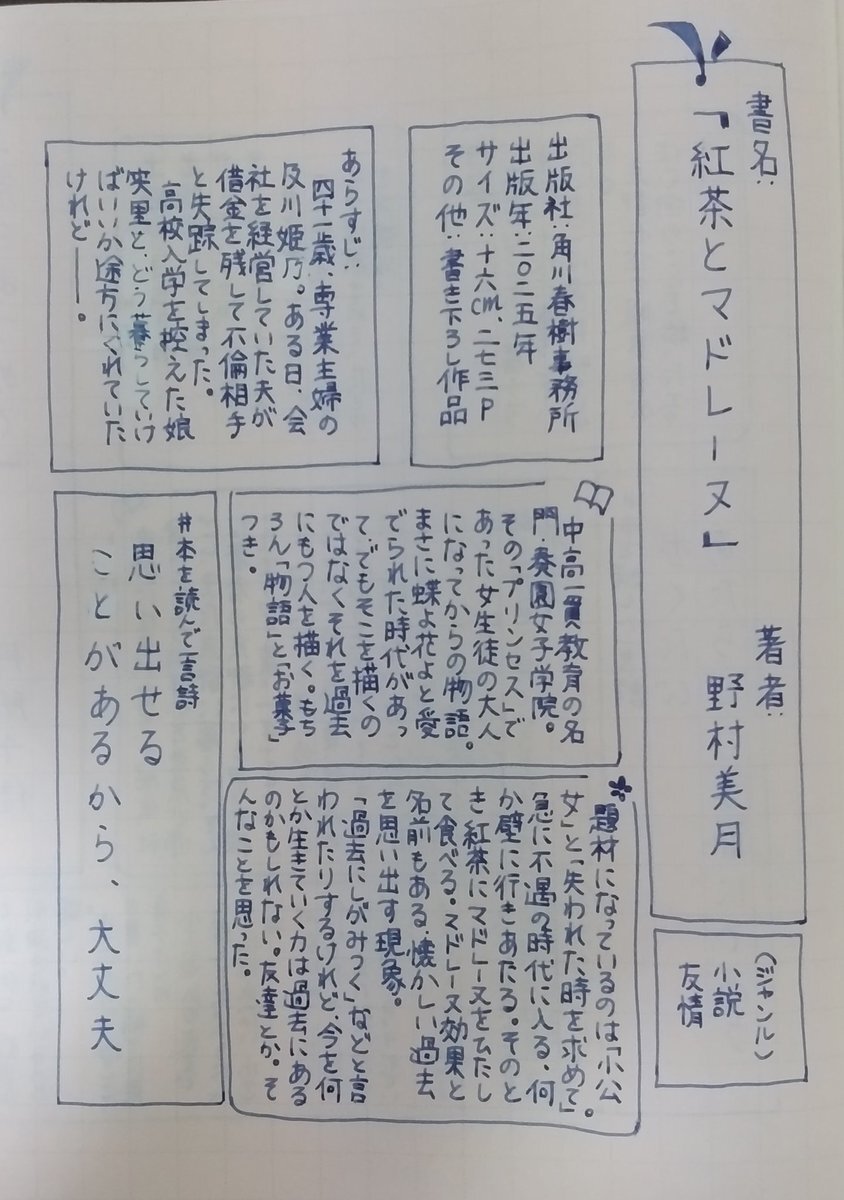 書名：
「紅茶とマドレーヌ」
著者：
野村美月
（ジャンル）
小説
友情
出版社：角川春樹事務所
出版年：二〇二五年
サイズ：十六cm、二七三P
その他：書き下ろし作品
あらすじ：
四十一歳、専業主婦の
及川姫乃。ある日、会
社を経営していた夫が
借金を残して不倫相手
と失踪してしまった。
高校入学を控えた娘
映里と、どう暮らしていけ
ばいいか途方にくれていた
けれど――。
中高一貫教育の名
門・葵園女子学院。
その「プリンセス」で
あった女生徒の大人
になってからの物語。
まさに蝶よ花よと愛
でられた時代があっ
て、でもそこを描くの
ではなくそれを過去
にもつ人を描く。もち
ろん「物語」と「お菓子」
つき。
題材になっているのは「小公
女」と「失われた時を求めて」。
急に不遇の時代に入る、何
か壁に行きあたる。そのと
き紅茶にマドレーヌをひたし
て食べる。マドレーヌ効果と
名前もある、懐かしい過去
を思い出す現象。
「過去にしがみつく」などと言
われたりするけれど、今を何
とか生きていく力は過去にある
のかもしれない。友達とか。そ
んなことを思った。
#本を読んで一言詩
思い出せる
ことがあるから、大丈夫